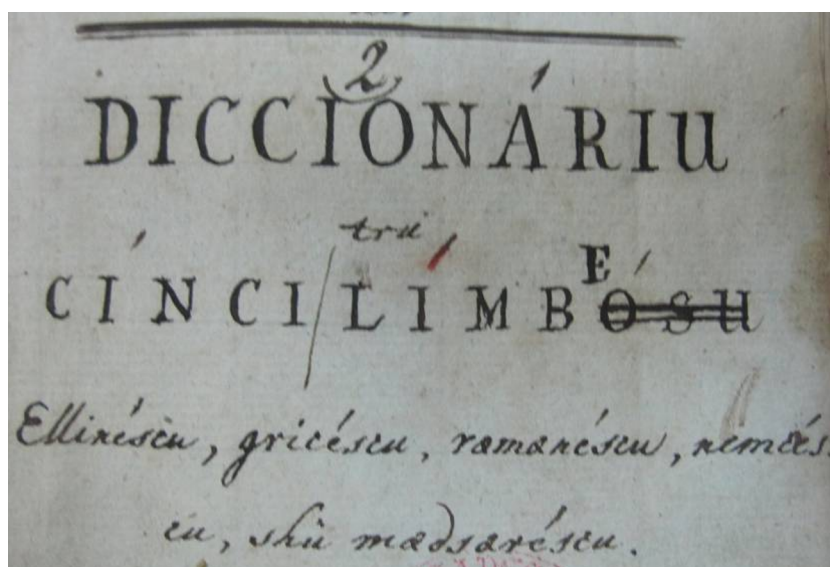 2
DICCIONÁRIU
tru
CÍNCI/LÍMBÓSU
E
Ellinéscu, gricéscu, ramanéscu, nemcés-
cu, shi mædsaréscu.